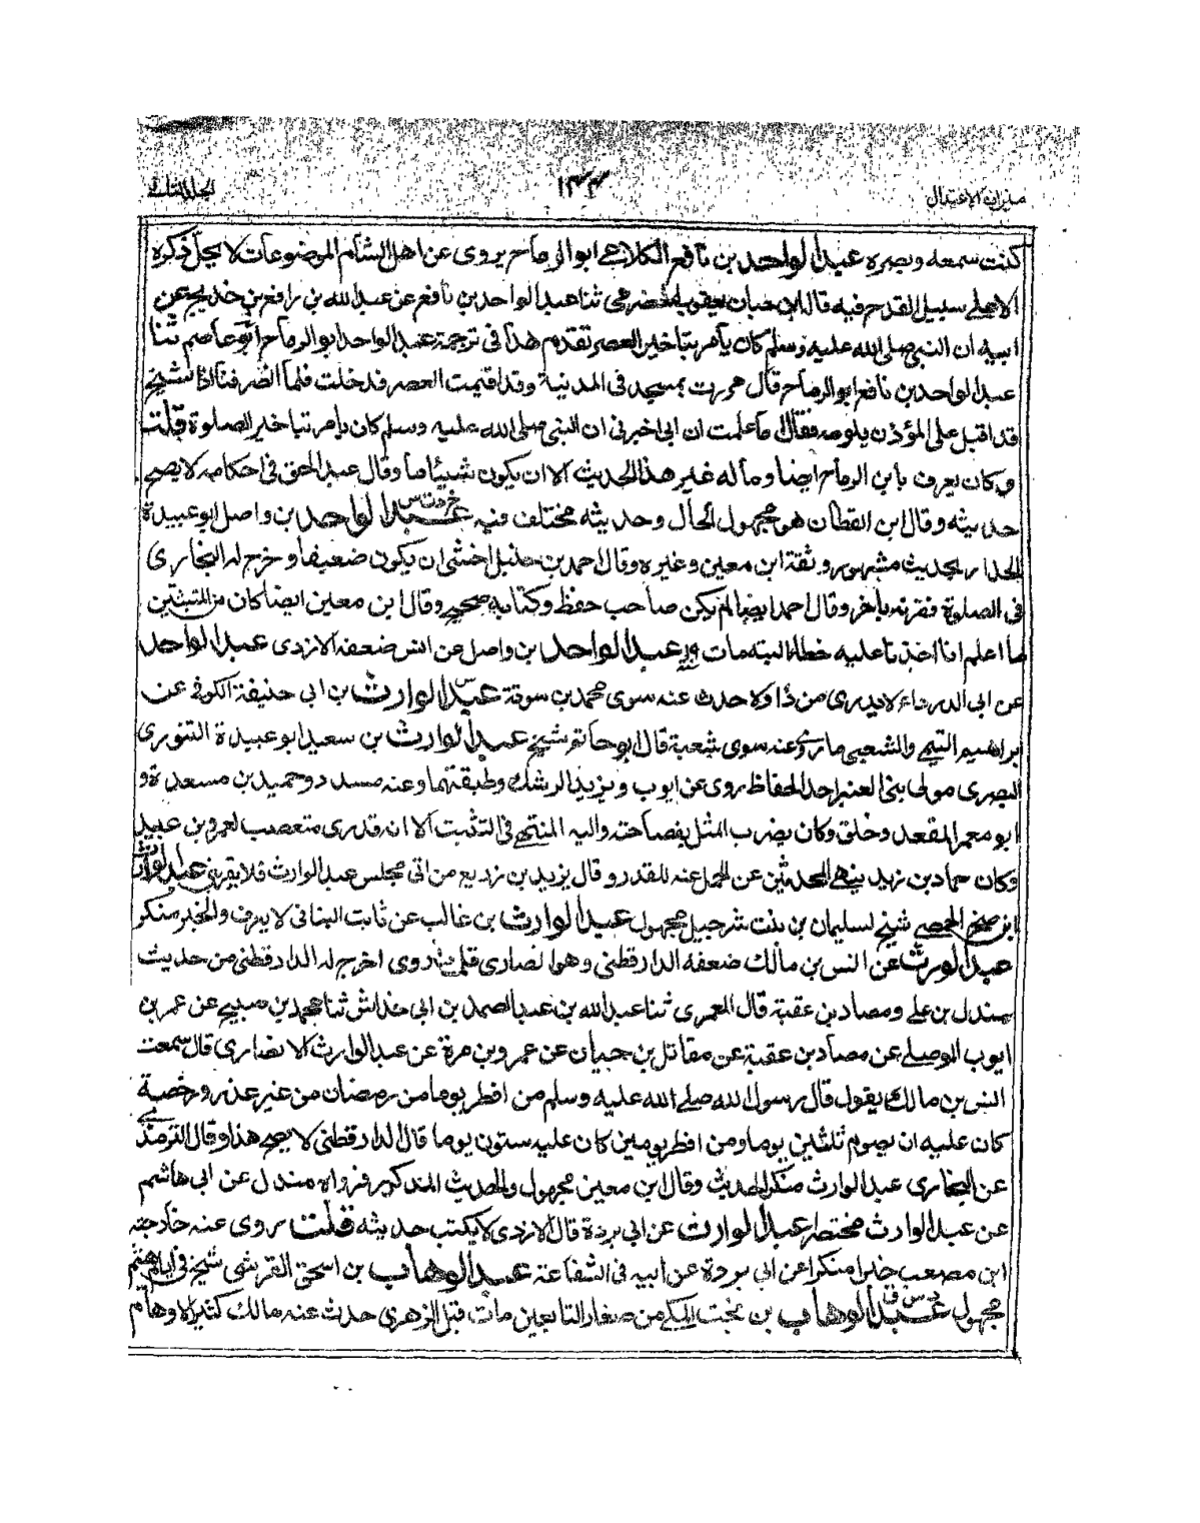 ميزان الاعتدال ١٤٤ الجلد الثانى
كنت سمعه وبصره عبد الواحد بن نافع الكلاعى ابو الرماح يروى عن اهل الشام الموضوعات لا يحل ذكره
الا على سبيل القدح فيه قال ابن حبان يعقوب الحضرمى ثنا عبد الواحد بن نافع عن عبد الله بن رافع بن خديج عن
ابيه ان النبى صلى الله عليه وسلم كان يأمر بتاخير العصر تقدم هذا فى ترجمة عبد الواحد ابو الرماح ابو عاصم ثنا
عبد الواحد بن نافع ابو الرماح قال مررت بمسجد فى المدينة وقد اقيمت العصر فدخلت فلما انصرفنا اذا شيخ
قد اقبل على المؤذن يلومه فقال ما علمت ان ابى اخبرنى ان النبى صلى الله عليه وسلم كان يامر بتاخير الصلوة قلت
وكان يعرف بابن الرماح ايضا وما له غير هذا الحديث الا ان يكون شيئا ما وقال عبد الحق فى احكامه لا يصح
حديثه وقال ابن القطان هو مجهول الحال وحديثه مختلف فيه عبد الواحد بن واصل ابو عبيدة
الحداد بحديث مشهور وثقة ابن معين وغيره وقال احمد بن حنبل اخشى ان يكون ضعيفا وخرج له البخارى
فى الصلوة فقرنه بأخر وقال احمد ايضا لم يكن صاحب حفظ وكتابه صحيح وقال ابن معين ايضا كان من المتثبتين
ما اعلم انا اخذنا عليه خطأ البتة مات عبد الواحد بن واصل عن انس ضعفه الازدى عبد الواحد
عن ابى الدرداء لا يدرى من ذا ولا حدث عنه سوى محمد بن سوقة عبد الوارث بن ابى حنيفة الكوفى عن
ابراهيم التيمى والشعبى ما روى عنه سوى شعبة قال ابو حاتم شيخ عبد الوارث بن سعيد ابو عبيدة التنورى
البصرى مولى بنى العنبر احد الحفاظ روى عن ايوب ويزيد الرشك وطبقتهما وعنه مسدد وحميد بن مسعدة و
ابو معمر المقعد وخلق وكان يضرب المثل بفصاحته واليه المنتهى فى التثبت الا انه قدرى متعصب لعمرو بن عبيد
وكان حماد بن زيد ينهى المحدثين عن الحمل عنه للقدر وقال يزيد بن زريع من اتى مجلس عبد الوارث فلا يقربنى عبد الوارث
ابن صخر الحمصى شيخ لسليمان بن بنت شرحبيل مجهول عبد الوارث بن غالب عن ثابت البنانى لا يعرف والخبر منكر
عبد الوارث عن انس بن مالك ضعفه الدارقطنى وهو انصارى قلما روى اخرج له الدارقطنى من حديث
مندل بن على ومصاد بن عقبة قال المعمرى ثنا عبد الله بن عبد الصمد بن ابى خداش ثنا محمد بن صبيح عن عمر بن
ايوب الموصلى عن مصاد بن عقبة عن مقاتل بن حيان عن عمرو بن مرة عن عبد الوارث الانصارى قال سمعت
انس بن مالك يقول قال رسول الله صلى الله عليه وسلم من افطر يوما من رمضان من غير عذر ورخصة
كان عليه ان يصوم ثلثين يوما ومن افطر يومين كان عليه ستون يوما قال الدارقطنى لا يصح هذا وقال الترمذى
عن البخارى عبد الوارث منكر الحديث وقال ابن معين مجهول والحديث المذكور فرواه مندل عن ابى هاشم
عن عبد الوارث مختصرا عبد الوارث عن ابى بردة قال الازدى لا يكتب حديثه قلت روى عنه خارجة
ابن مصعب خبرا منكرا عن ابى بردة عن ابيه فى الشفاعة عبد الوهاب بن اسحق القرشى شيخ فى ايام هشيم
مجهول عبد الوهاب بن بخت المكى من صغار التابعين مات قبل الزهرى حدث عنه مالك كثير الاوهام